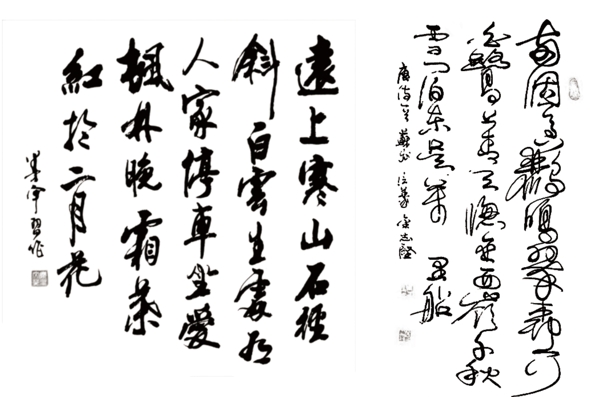 遠上寒山石徑
斜白雲生處有
人家停車坐愛
楓林晚霜葉
紅於二月花
習作
兩個黃鸝鳴翠柳一行
白鷺上青天窗含西嶺千秋
雪門泊東吳萬里船
唐詩一首